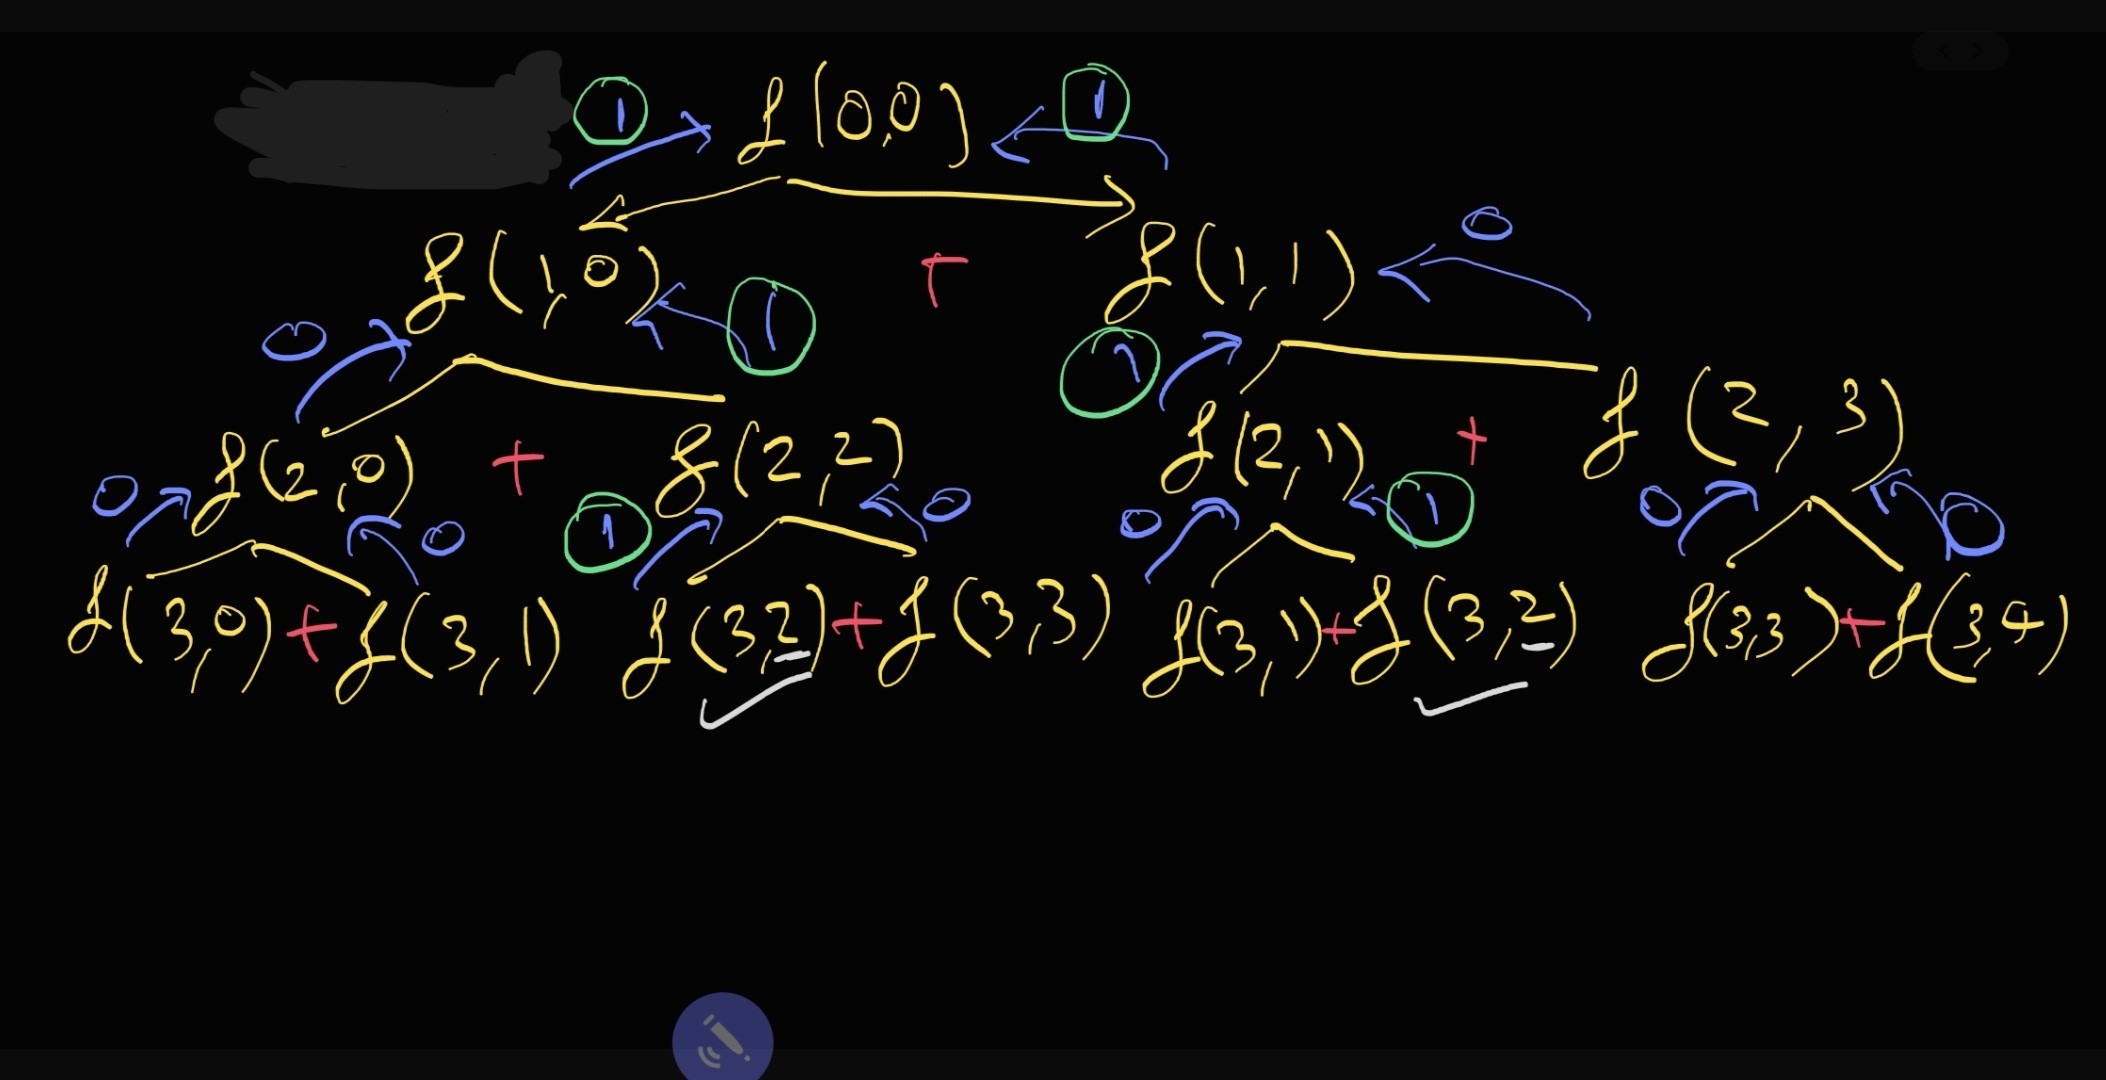 1 f(0,0) 1
0
f(1,0) + f(1,1)
0 1 1
f(2,0) + f(2,2) f(2,1) + f(2,3)
0 0 1 0 0 1 0 0
f(3,0) + f(3,1) f(3,2) + f(3,3) f(3,1) + f(3,2) f(3,3) + f(3,4)